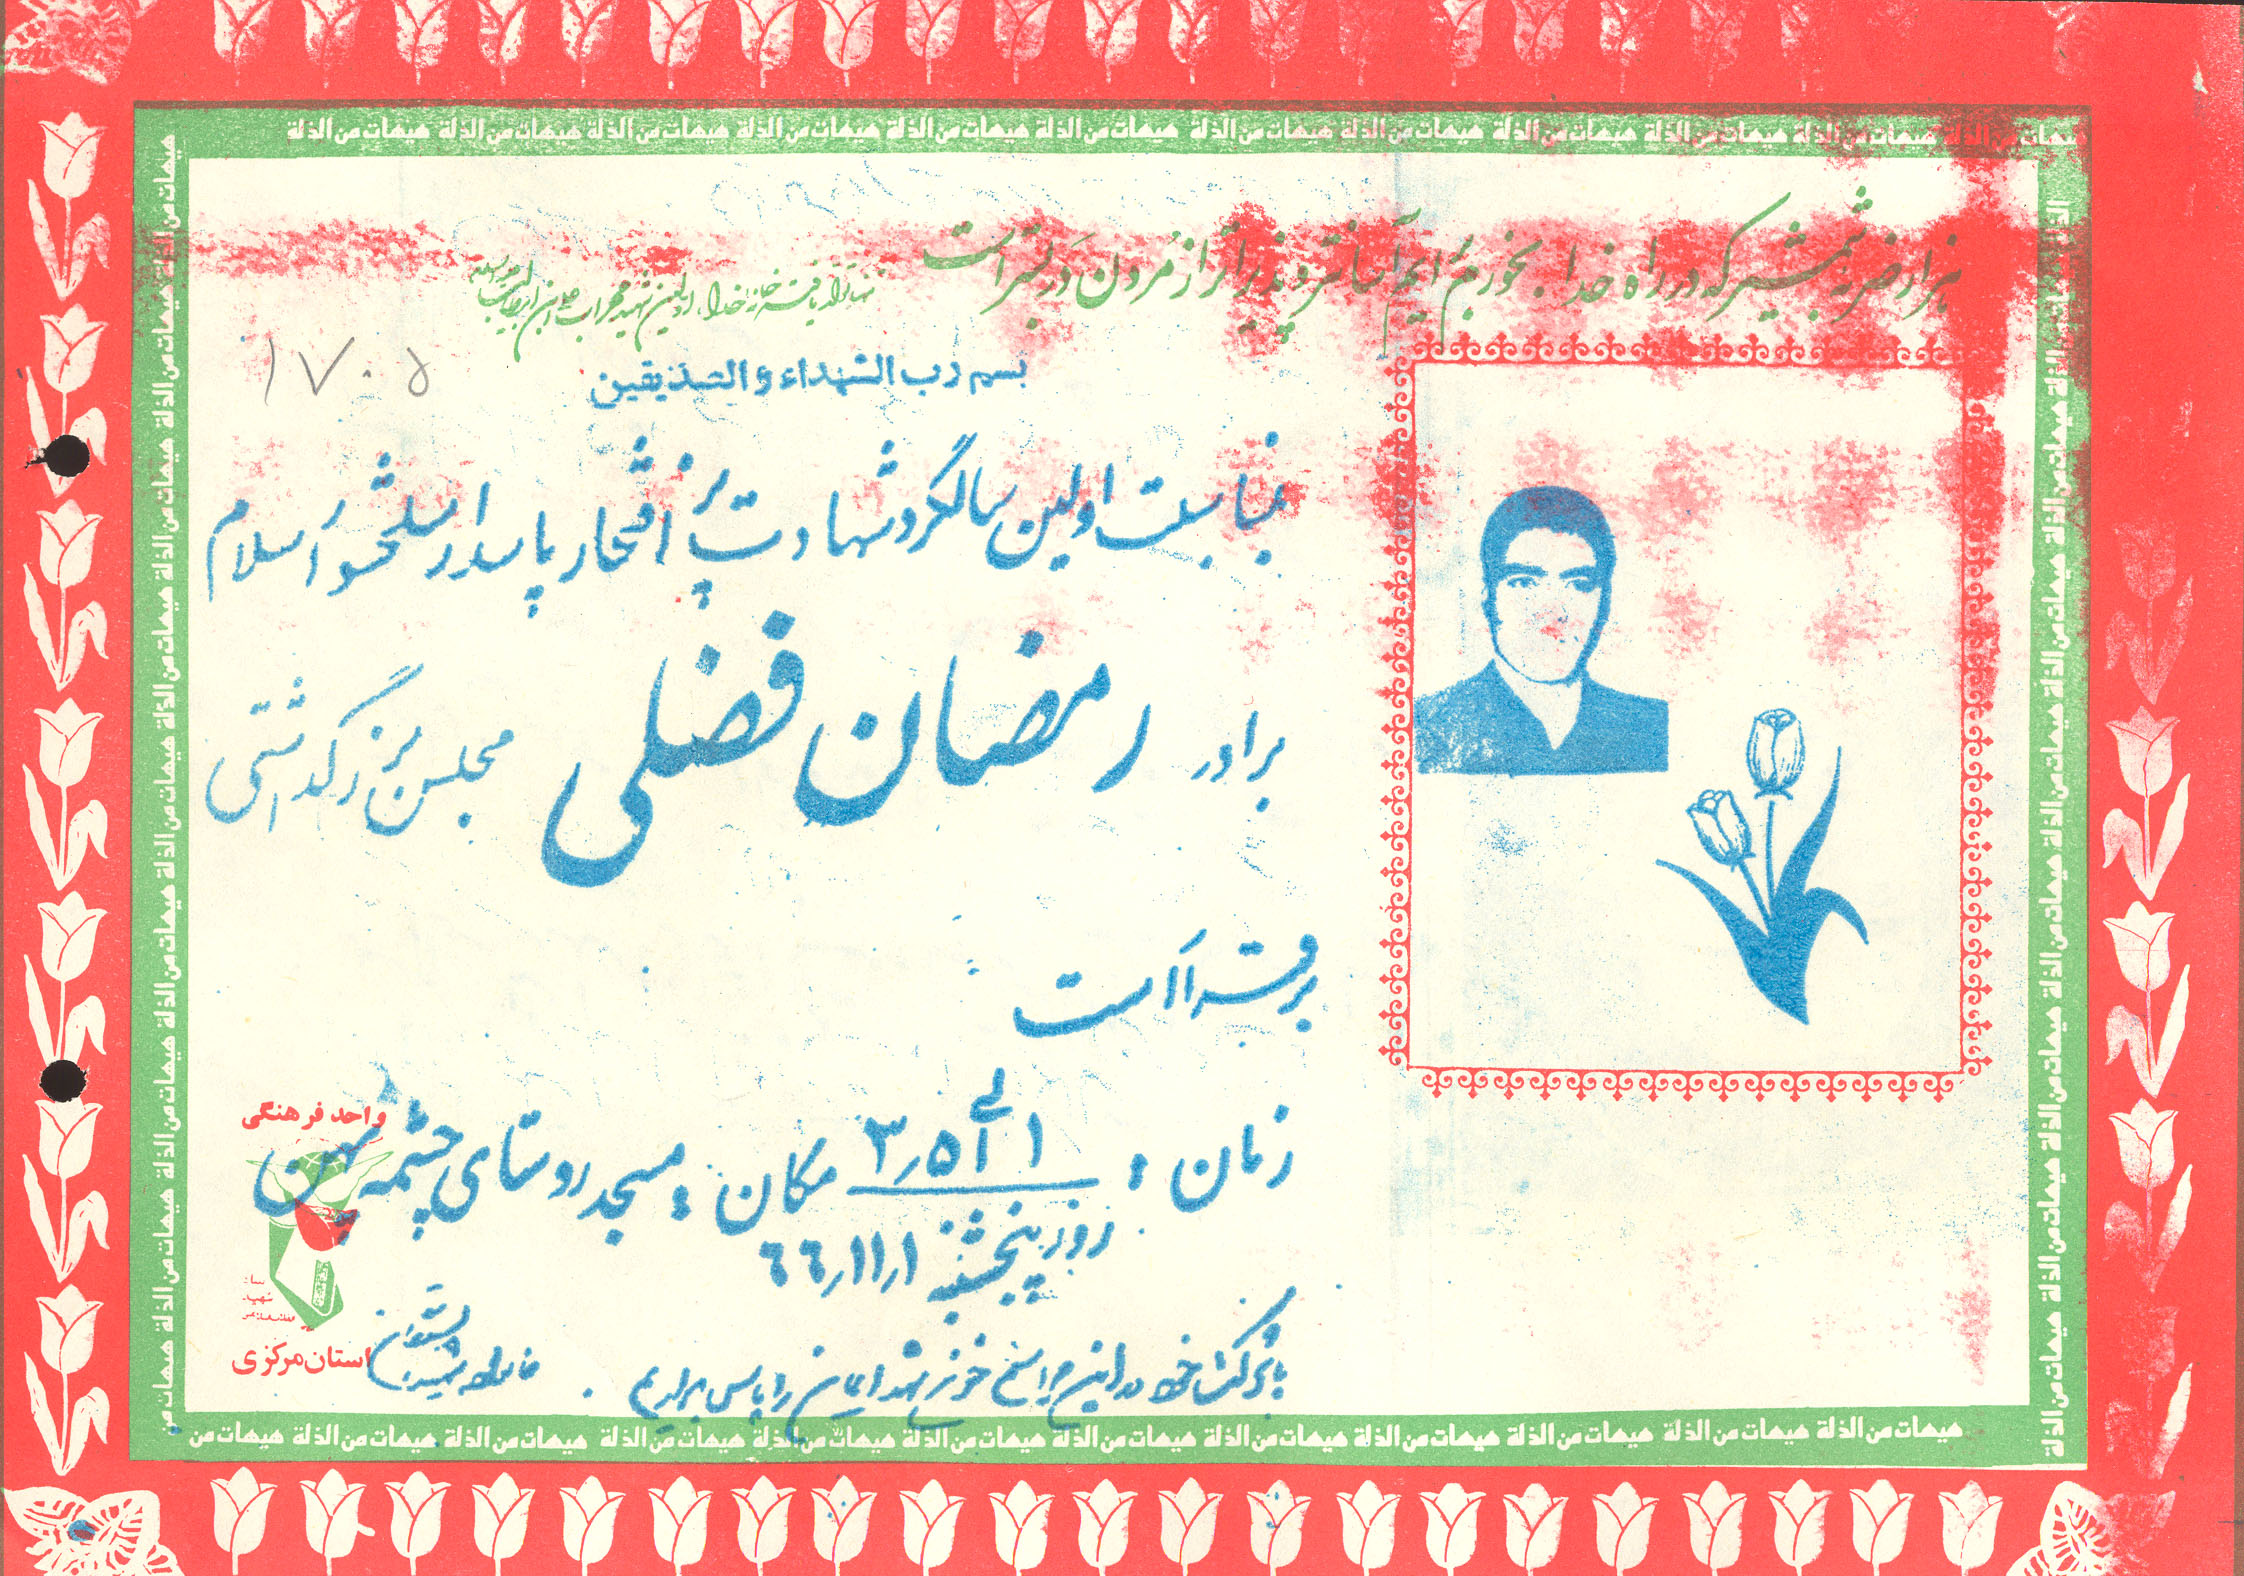 هیهات من الذلة هیهات من الذلة هیهات من الذلة هیهات من الذلة هیهات من الذلة هیهات من الذلة هیهات من الذلة هیهات من الذلة هیهات من الذلة هیهات من الذلة هیهات من الذلة هیهات من الذلة
هزار ضربه شمشیر که در راه خدا بخورم برایم آسانتر و پذیراتر از مردن در بستر است
خانه خدا، اولین شهید محراب علی ابن ابیطالب
۱۷۰۵
بسم رب الشهداء والصدیقین
بمناسبت اولین سالگرد شهادت پرافتخار پاسدار سلحشور اسلام
برادر رمضان فضلی مجلس بزرگداشتی
برقرار است
زمان: ۱ الی ۳٫۵ مکان: مسجد روستای چشمه پهن
روز پنجشنبه ۶۶٫۱۱٫۱
با شرکت خود در این مراسم خون شهدایمان را پاس بداریم.
خانواده شهید
واحد فرهنگی
بنیاد
شهید
استان مرکزی
هیهات من الذلة هیهات من الذلة هیهات من الذلة هیهات من الذلة هیهات من الذلة هیهات من الذلة هیهات من الذلة هیهات من الذلة هیهات من الذلة هیهات من الذلة هیهات من الذلة هیهات من